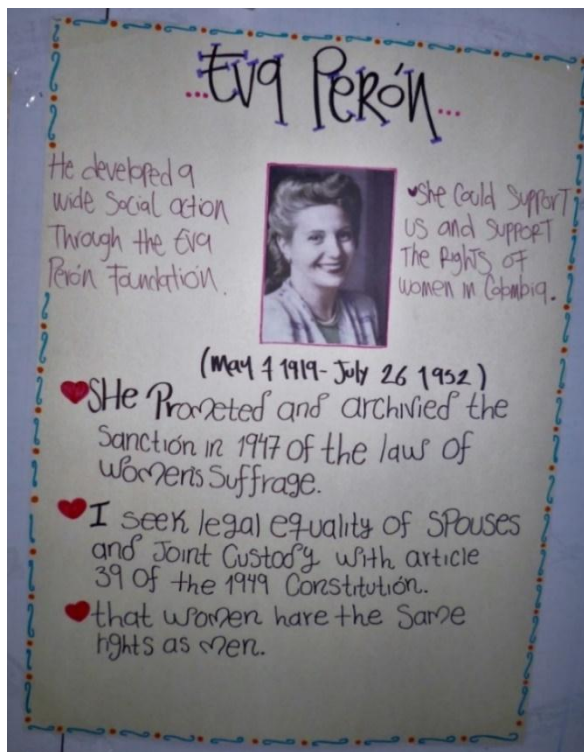 ...Eva Perón...
He developed a
wide Social action
Through the Eva
Perón Foundation.
She Could Support
us and support
The Rights of
women in Colombia.
(May 7 1919- July 26 1952)
SHe Prometed and archivied the
Sanctión in 1947 of the law of
women's Suffrage.
I seek legal equality of Spouses
and Joint Custody with article
39 Of the 1949 Constitutión.
that women have the Same
rights as men.